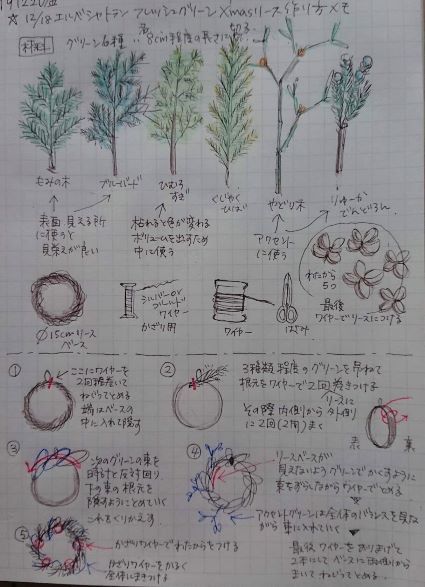 191220金
☆12/18 エルベシャトラン フレッシュグリーンXmasリース作り方メモ
材料 グリーン6種 8cm程度の長さに切る
もみの木
ブルーバード
ひむろすぎ
くじゃくひば
やどり木
りゅーかでんどろん
表面見える所
に使うと
見栄えが良い
枯れると色が変わる
ボリュームを出すため
中に使う
アクセント
に使う
わたから
5つ
最後
ワイヤーでリースにつける
Ø15cmリース
ベース
シルバーor
ゴールド
ワイヤー
かざり用
ワイヤー
はさみ
①
ここにワイヤーを
2回程巻いて
ねじってとめる
端はベースの
中に入れ隠す
②
3種類程度のグリーンを束ねて
根元をワイヤーで2回巻きつける
リースに
その際内側から外側
に2回(2周)まく
表 裏
③
次のグリーンの束を
時計と反対回り
下の束の根元を
隠すようにとめていく
これをくりかえす
④
リースベースが
見えないようグリーンでかくすように
束をずらしながらワイヤーでとめる
アクセントグリーンは全体のバランスを見な
がら束に入れていく
⑤
かざりワイヤーでわたからをつける
かざりワイヤーをかるく
全体にまきつける
最後ワイヤーをおりまげて
2本にしてベースに両側から
まいてねじってとめる